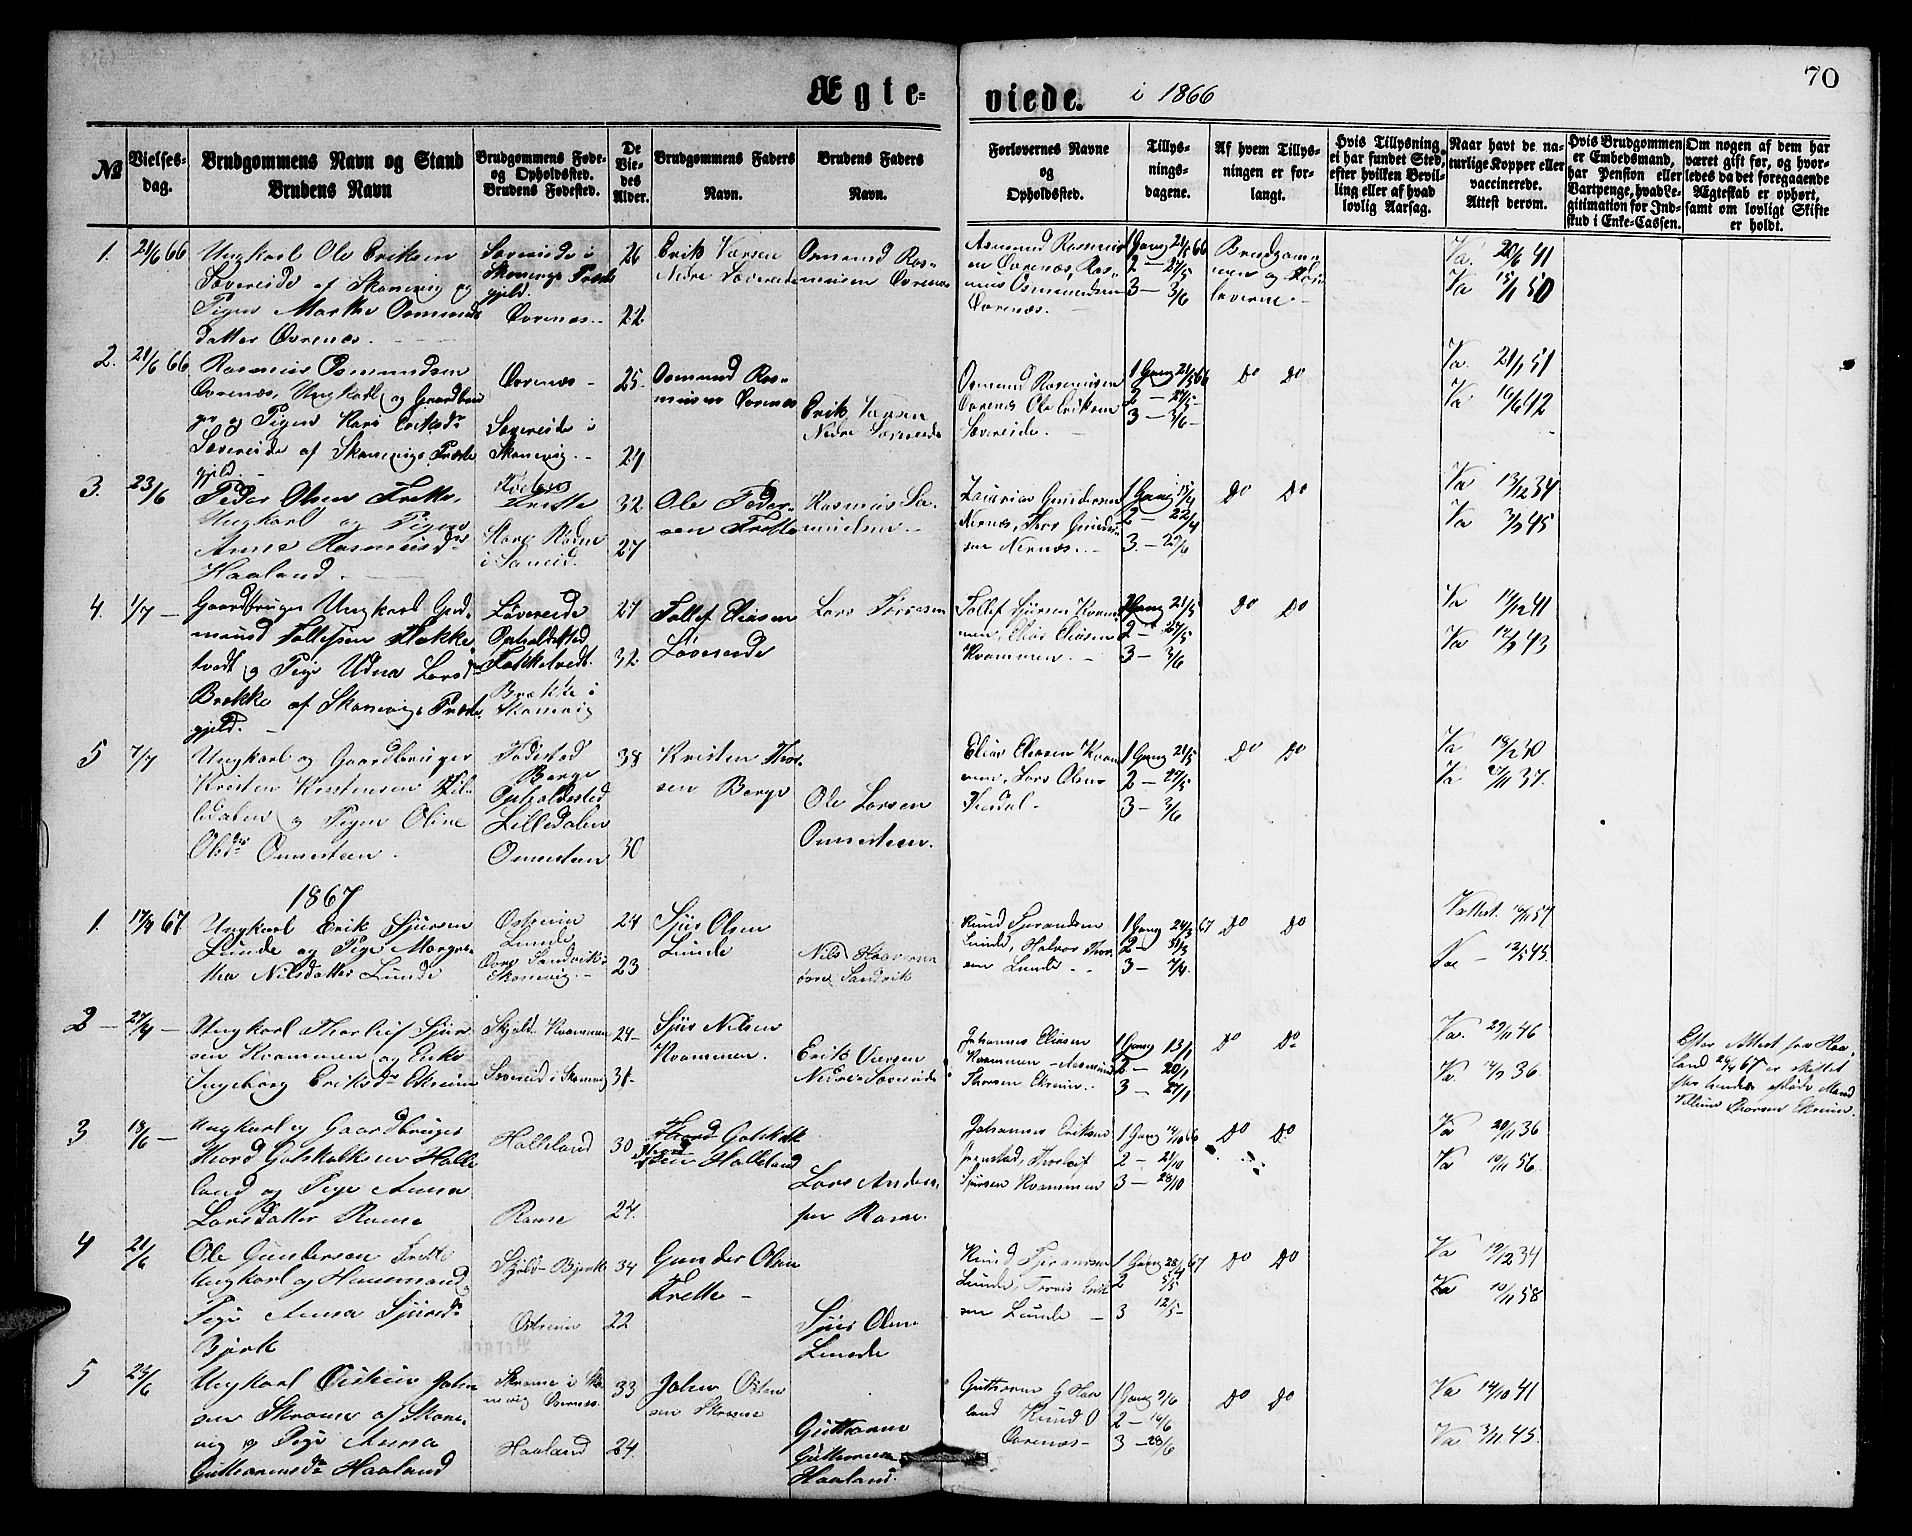 Ægte-
viede. i 1866
70
№
Vielses-
dag.
Brudgommens Navn og Stand
Brudens Navn
Brudgommens Føde-
og Opholdssted.
Brudens Fødested.
De
Vie-
des
Alder.
Brudgommens Faders
Navn.
Brudens Faders
Navn.
Forlovernes Navne
og
Opholdssted.
Tillys-
nings-
dagene.
Af hvem Tillys-
ningen er for-
langt.
Hvis Tillysning
ei har fundet Sted,
efter hvilken Bevil-
ling eller af hvad
lovlig Aarsag.
Naar havt de na-
turlige Kopper eller
vaccinerede.
Attest derom.
Hvis Brudgommen
er Embedsmand,
har Pension eller
Vartpenge, hvad Le-
gitimation for Ind-
skud i Enke-Cassen.
Om nogen af dem har
været gift før, og hvor-
ledes da det foregaaende
Ægteskab er ophørt,
samt om lovligt Skifte
er holdt.
1. 21/6 66
Ungkarl Ole Eriksen
Sævereide af Skonevig og
Pigen Marthe Osmunds
datter Øvrenæs.
Sævereide i
Skonevigs Præste
gjeld.
Øvrenæs
26
22
Erik
Nedre Sævereide
Osmund Ras-
musen Øvrenæs
Osmund Rasmus
en Øvrenæs, Ras-
mus Osmundsen
Øvrenæs.
1 Gang 21/5 66
2 — 27/5
3 — 3/6
Brudgom
men og For
loverne
Va. 20/6 41
Va 15/11 50
2. 21/6 66
Rasmus Osmundsen
Øvrenæs, Ungkarl og Gaardbru
ger og Pigen Kari Eriksdr
Sævereide af Skonevigs Præste
gjeld.
Øvrenæs
Sævereide i
Skonevig.
25
24
Osmund Ras-
musen Øvrenæs
Erik
Nedre Sævereide
Osmund Rasmusen
Øvrenæs Ole Eriksen
Sævereide.
1 Gang 21/5 66
2 — 27/5
3 — 3/6
Do Do
Va. 21/1 51
Va 16/6 42
3. 23/6
Peder Olsen Frette,
Ungkarl og Pigen
Anna Rasmusdr
Haaland.
Frette
i
32
27
Ole Peder-
sen Frette
Rasmus Sa-
muelsen
Gundersen
Nernæs, Thor Gunder-
sen Nernæs.
1 Gang 15/4
2 — 22/4
3 — 29/6
Do Do
Va 13/12 34
Va 3/9 45
4. 1/7
Gaardbruger Ungkarl Gud-
mund Tollefsen Flokke-
tvedt og Pige Udna Larsdr
Brekke af Skonevigs Præste
gjeld.
Løvereide
Opholdssted
Brekke i
Skonevig
27
32
Tollef Eliasen
Løvereide
Lars
Tollef Sjursen Kvam
men, Elias Eliasen
Kvammen.
1 Gang 21/5
2 — 27/5
3 — 3/6
Do Do
Va 14/12 41
Va 14/9 43
5 7/7
Ungkarl og Gaardbruger
Kristen Kristensen Lil-
ledalen og Pigen Oline
Olsdr Ommesteen.
Fødested
Borge
Opholdssted
Lilledalen
Ommesteen
38
30
Kristen Thor-
sen Borge
Ole Larsen
Ommesteen.
Elias Eliasen Kvam
men, Lars Olsen
1 Gang 21/5
2 — 27/5
3 — 3/6
Do Do
Va 30
Va 37.
1867
1. 17/4 67
Ungkarl Erik Sjursen
Lunde og Pige Margre-
tha Nilsdatter Lunde
Østreim
Lunde
Øvre Sandvik
Skonevig
24
23
Sjur Olsen
Lunde
Nils
øvre Sandvik
Knud Tjerandsen
Lunde, Halvor Thor
sen Lunde
1 Gang 24/3 67
2 — 31/3
3 — 7/4
Do Do
Va 12/5 45
2 27/4
Ungkarl Thorleif Sjur-
sen Kvammen og Enke
Ingeborg Eriksdr Ekreim
Skjold Kvammen
Sævereid i Skonevig
24
31
Sjur Nilsen
Kvammen.
Erik
Nedre Sævereide
Johannes Eliasen
Kvammen Aasmund
Thorsen Ekreim
1 Gang 13/1
2 — 20/1
3 — 27/1
Do Do
Va. 29/11 46
Va. 14/9 36
Efter Attest fra Haa-
land 26/4 67 er skiftet
efter hendes afdøde Mand
Villum Thorsen Ekreim.
3 18/6
Ungkarl og Gaardbruger
Thord Gotskalksen Halle
land og Pige Anna
Larsdatter Ramse
Halleland
Ramse
30
24
Gotskalk
Halleland
Lars Anders
sen
Johannes Eriksen
Thorleif
Sjursen Kvammen
1 Gang 14/10 66
2 — 21/10
3 — 28/10
Do Do
Va 20/11 36
Va 19/11 56
4 21/6
Ole Gundersen Frette
Ungkarl og Huusmand
Pige Anna Sjursdr
Bjerk
Skjold Bjerk
Østreim
34
22
Gunder Olsen
Frette
Sjur Olsen
Lunde
Knud Tjerandsen
Lunde, Erik
sen Lunde
1 Gang 28/4 67
2 5/5
3 12/5
Do Do
Va 19/12 34
Va 10/11 58
5 23/6
Ungkarl Østein John
sen Skrome af Skone-
vig og Pige Anna
Guttormsdr Haaland
Haaland
33
24
John Østen
sen
Guttorm
Guttormsen
Haaland
Guttorm G Haa
land Knud O
Øvrenæs
1 Gang 9/6
2 — 16/6
3 — 23/6
Do Do
Va 14/10 41
Va 3/11 45.